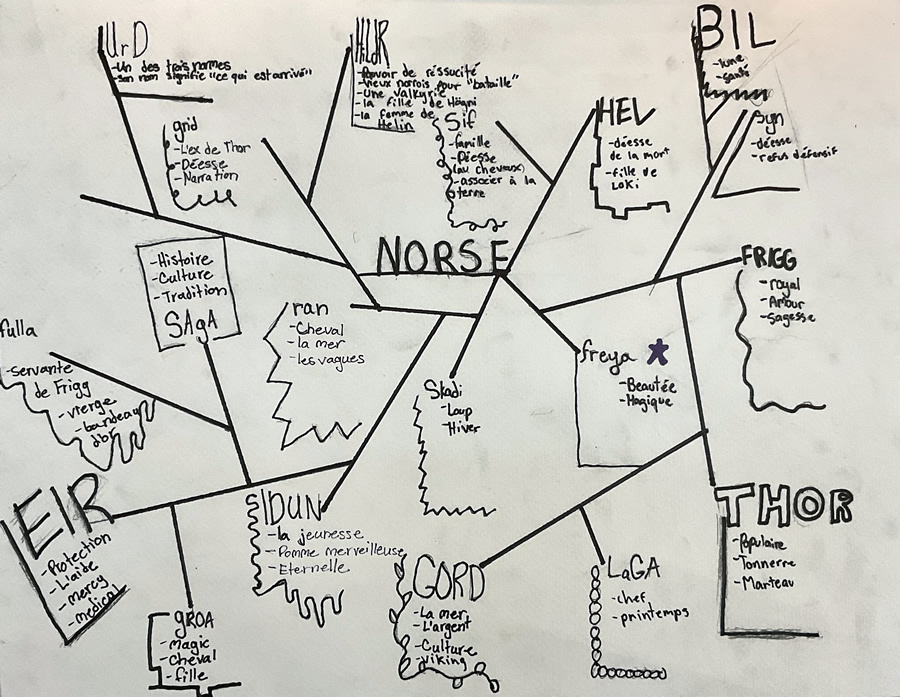 UrD
-Un des trois normes
-son nom signifie "ce qui est arrivé"
HILDR
-Pouvoir de réssucité
-Vieux norrois pour "bataille"
-Une valkyrie
-la fille de Högni
-la femme de
Helin
BIL
-lune
-santé
grid
-L'ex de Thor
-Déesse
-Narration
Sif
-famille
-Déesse
(au cheveux)
-associer à la
terre
HEL
-déesse
de la mort
-fille de
Loki
Syn
-déesse
-refus défensif
NORSE
-Histoire
-Culture
-Tradition
SAgA
ran
-Cheval
-la mer
-les vagues
FRIGG
-royal
-Amour
-Sagesse
fulla
-servante
de Frigg
-vierge
-bandeau
d'or
freya
-Beautée
-Magique
Skadi
-Loup
-Hiver
EIR
-Protection
-L'aide
-mercy
-medical
IDUN
-la jeunesse
-Pomme merveilleuse
-Eternelle
THOR
-Populaire
-Tonnerre
-Marteau
GORD
-La mer
-L'argent
-Culture
-viking
LaGA
-chef
-printemps
gROA
-Magic
-Cheval
-fille